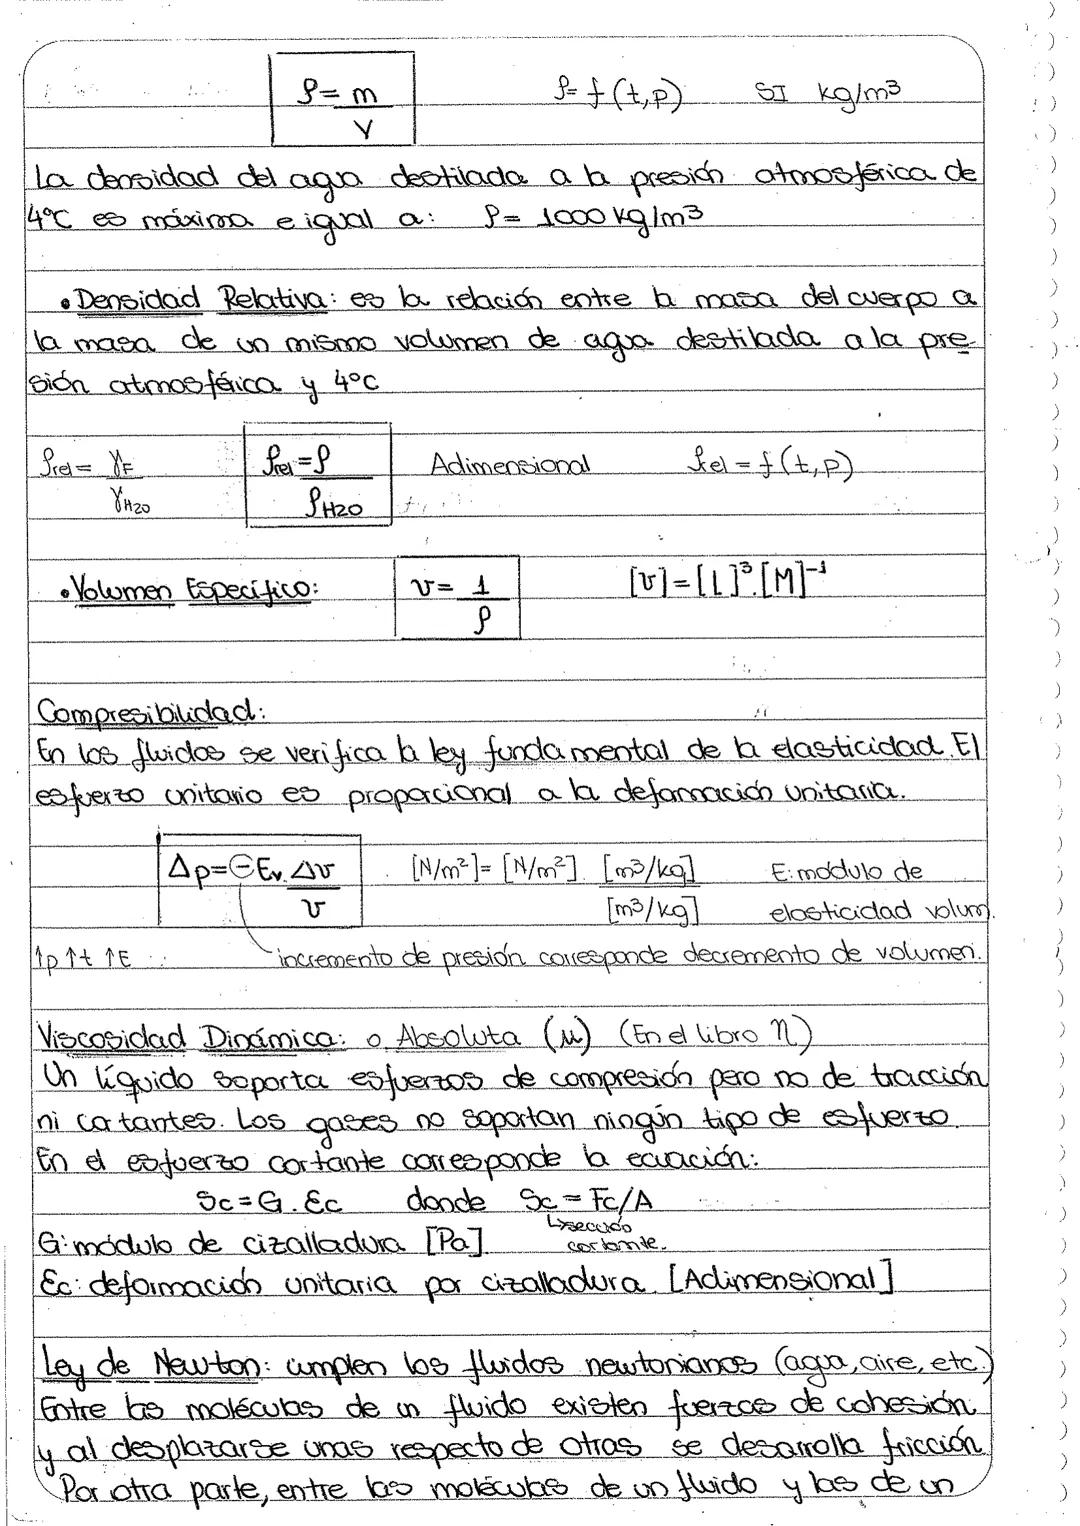 ρ = m/V    ρ = f(t,p)    SI kg/m³
La densidad del agua destilada a la presión atmosférica de
4ºC es máxima e igual a: ρ = 1000 kg/m3
• Densidad Relativa: es la relación entre la masa del cuerpo a
la masa de un mismo volumen de agua destilada a la pre-
sión atmosférica y 4ºC
ρrel = γF/γH2O    ρrel = ρ/ρH2O    Adimensional    ρrel = f(t,p)
• Volumen Específico:    v = 1/ρ    [v] = [L]³.[M]⁻¹
Compresibilidad:
En los fluidos se verifica la ley fundamental de la elasticidad. El
esfuerzo unitario es proporcional a la deformación unitaria.
Δp = -Ev. Δv/v    [N/m²] = [N/m²]. [m³/kg]/[m³/kg]    E: módulo de
elasticidad volum.
↑p ↑t ↑E    incremento de presión corresponde decremento de volumen.
Viscosidad Dinámica: o Absoluta (μ) (En el libro η)
Un líquido soporta esfuerzos de compresión pero no de tracción
ni cortantes. Los gases no soportan ningún tipo de esfuerzo.
En el esfuerzo cortante corresponde la ecuación:
Sc = G . Ɛc    donde    Sc = Fc/A
cortante.
G: módulo de cizalladura [Pa]
Ɛc: deformación unitaria por cizalladura. [Adimensional]
Ley de Newton: cumplen los fluidos newtonianos (agua, aire, etc.)
Entre las moléculas de un fluido existen fuerzas de cohesión
y al desplazarse unas respecto de otras se desarrolla fricción.
Por otra parte, entre las moléculas de un fluido y las de un